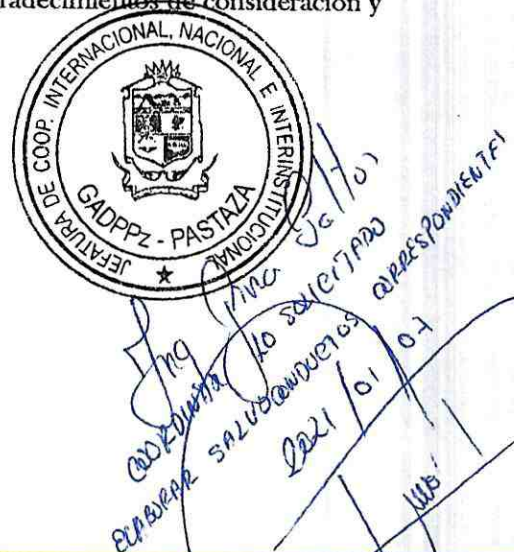 radecimientos de consideración y
JEFATURA DE COOP. INTERNACIONAL, NACIONAL E INTERINSTITUCIONAL
GADPPz - PASTAZA
Ing
COORDINAR LO SOLICITADO
ELABORAR SALVOCONDUCTOS CORRESPONDIENTES
2021/01/07